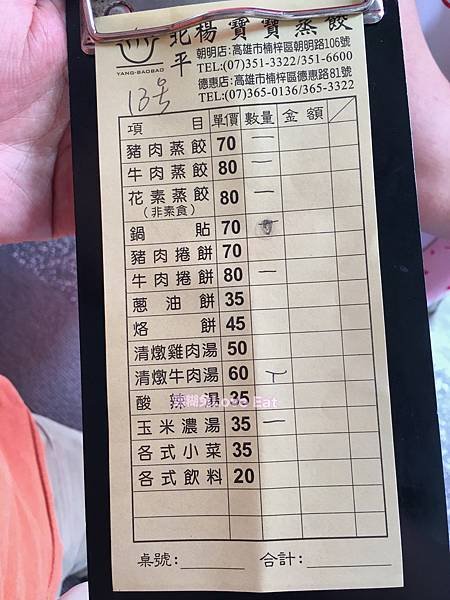 北平楊寶寶蒸餃
YANG-BAOBAO
朝明店:高雄市楠梓區朝明路106號
TEL:(07)351-3322/351-6600
德惠店:高雄市楠梓區德惠路81號
TEL:(07)365-0136/365-3322
13号
項目 單價 數量 金額
豬肉蒸餃 70 一
牛肉蒸餃 80 一
花素蒸餃 80 一
(非素食)
鍋貼 70
豬肉捲餅 70
牛肉捲餅 80 一
蔥油餅 35
烙餅 45
清燉雞肉湯 50
清燉牛肉湯 60
酸辣湯 35
Love Eat
玉米濃湯 35 一
各式小菜 35
各式飲料 20
桌號: 合計: